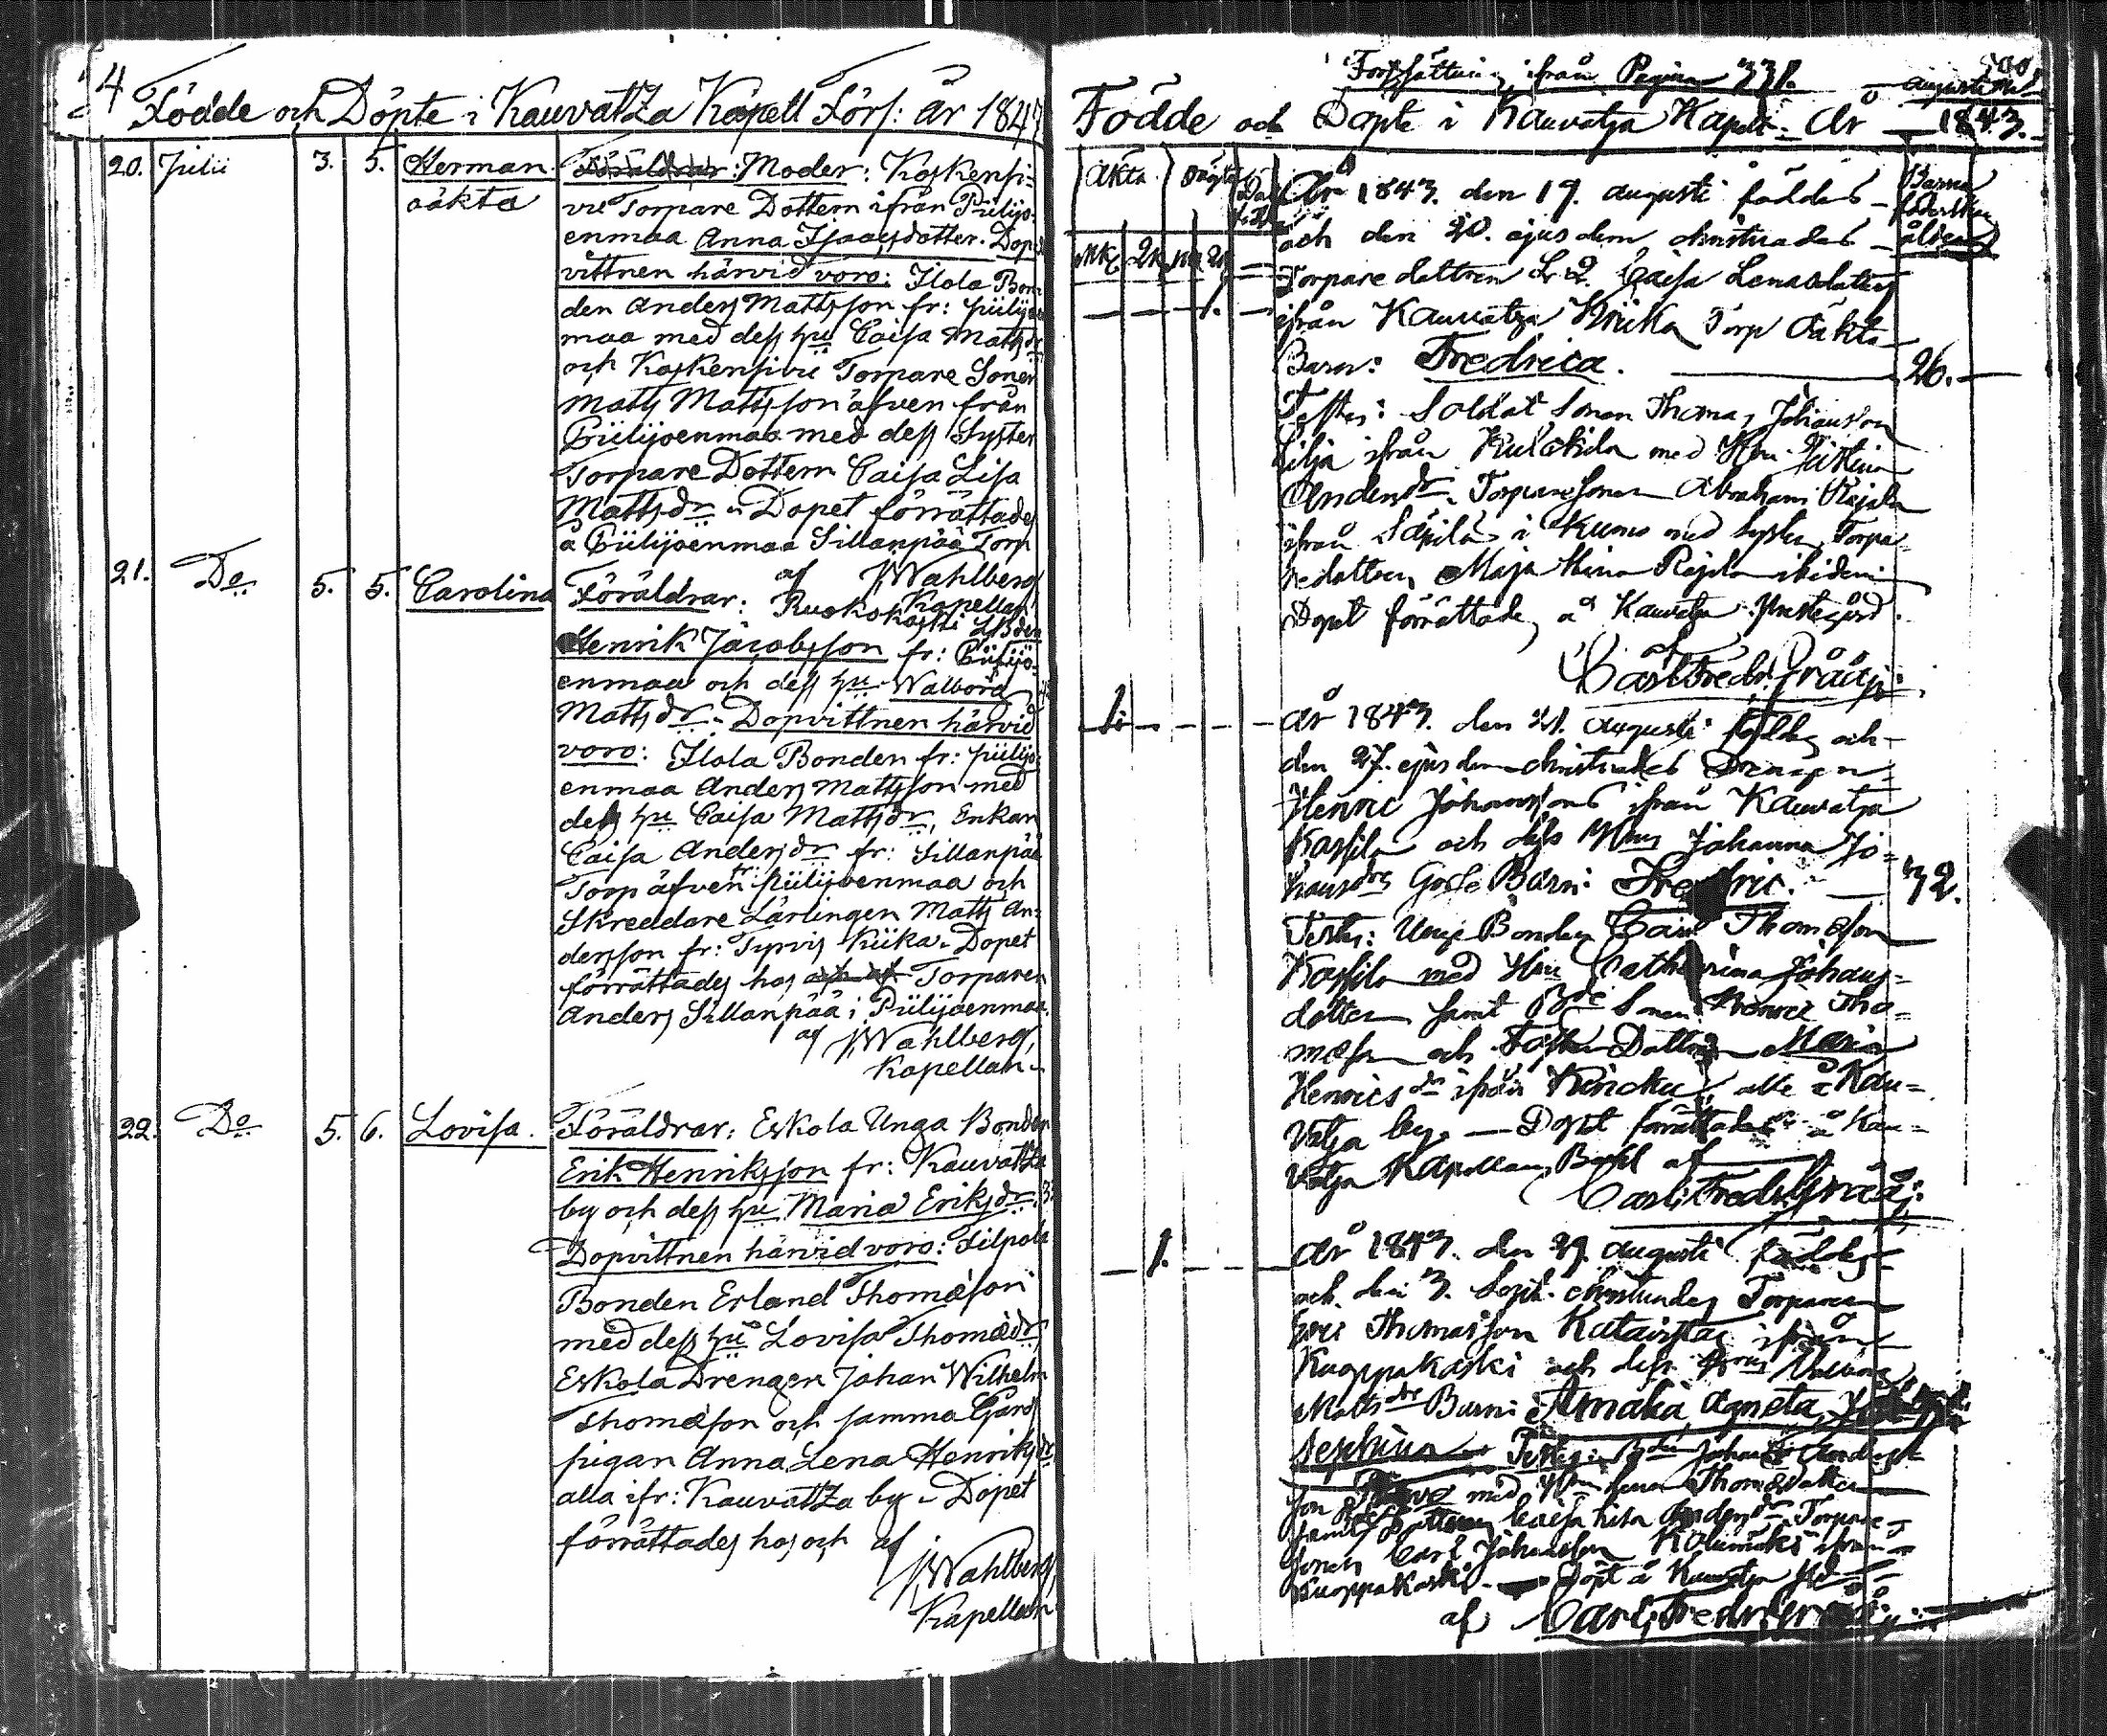 4 Födde och Döpte i Kauvatza Kapell Förs: år 1847
20. Julii 3. 5. Herman oäkta
Föräldrar: Moder: Koskensi-
vu Torpare Dottern ifrån Piilijo-
enmaa Anna Isaacsdotter. Dop-
vittnen härvid voro: Ilola Bon-
den Anders Mattsson fr: Piilijoen
maa med dess hu Caisa Mattsdr
och Koskensivu Torpare Sonen
Matts Mattsson äfven från
Piilijoenmaa med dess Syster
Torpare Dottern Caisa Lisa
Mattsdr. Dopet förrättades
å Piilijoenmaa Sillanpää Torp
af J Wahlberg
Kapellan
21. Do 5. 5. Carolina
Föräldrar: Ruokokoski LBden
Henrik Jacobsson fr: Piilijo-
enmaa och dess hu Walborg
Mattsdr. Dopvittnen härvid
voro: Ilola Bonden fr: Piilijo-
enmaa Anders Mattsson med
dess hu Caisa Mattsdr, Enkan
Caisa Andersdr fr: Sillanpää
Torp äfven fr Piilijoenmaa och
Skreddare Lärlingen Matts An-
dersson fr: Tyrvis Kiika. Dopet
förrättades hos och af Torparen
Anders Sillanpää i Piilijoenmaa
af J Wahlberg,
Kapellan
22. Do 5. 6. Lovisa.
Föräldrar: Eskola Unga Bonden
Erik Henriksson fr: Kauvatza
by och dess hu Maria Eriksdr 3
Dopvittnen härvid voro: Filpola
Bonden Erland Thomæson
med dess hu Lovisa Thomædr
Eskola Drengen Johan Wilhelm
Thomæson och samma Gårds
pigan Anna Lena Henriksdr
alla ifr: Kauvatza by. Dopet
förrättades hos och af
J Wahlberg,
Kapellan
Fortsättning ifrån Pagina 331.
500
augusti Md
Födde och Döpte i Kauvatza Kapell År 1843.
Äkta Oägta
Mk Qk Mk Qk
Barna
föderskans
ålder
År 1843. den 19. augusti föddes
och den 20. ejusdem christnades
Torpare dottren Caisa Lenasdotters
ifrån Kauvatza Kirika Torp Oäkta
1.
Barn: Fredrica. 26.
Testes: Soldat Sonen Thomas Johansson
Lilja ifrån Kulckila med Hru
Andersdr. Torparesonen Abraham Rajala
ifrån Säpilä i Kumo med Syster Torpa-
redottren Maja Stina Rajala ibidem
Dopet förrättades å Kauvatza Prestegård.
af
Carl Fredr. Gråå
1. År 1843. den 21. augusti föddes och
den 27. ejusdem christnades Drengen
Henric Johanssons ifrån Kauvatza
Kassila och dess Hrus Johanna Jo-
hansdrs Gosse Barn: Fredric. 32.
Testes: Unge Bonden Carl Thomæson
Kassila med Hru Catharina Johans-
dotter samt Bde Sonen Henric Tho-
mæson och Dottren Maria
Henricsdr ifrån alla i Kau-
vatza by. — Dopet förrättades å Kau-
vatza Kapellans Bohl af
Carl Fredr. Gråå
1. År 1843. den 29. augusti föddes
och den 3. Sept. christnades Torparen
Eric Thomasson Katavisto ifrån
Kuoppakoski och dess Hrus
Mattsdrs Barn: Amalia, Agneta, Jo-
sephina Testes: Bden Johan Anders-
son med Hru Lena Thomædotter
samt Dottren Caisa Lisa Andersdr. Torpare-
sonen Carl Johansson Kolinmäki ifrån
Kuoppakoski. Döpt å Kauvatza
af Carl Fredr. Gråå